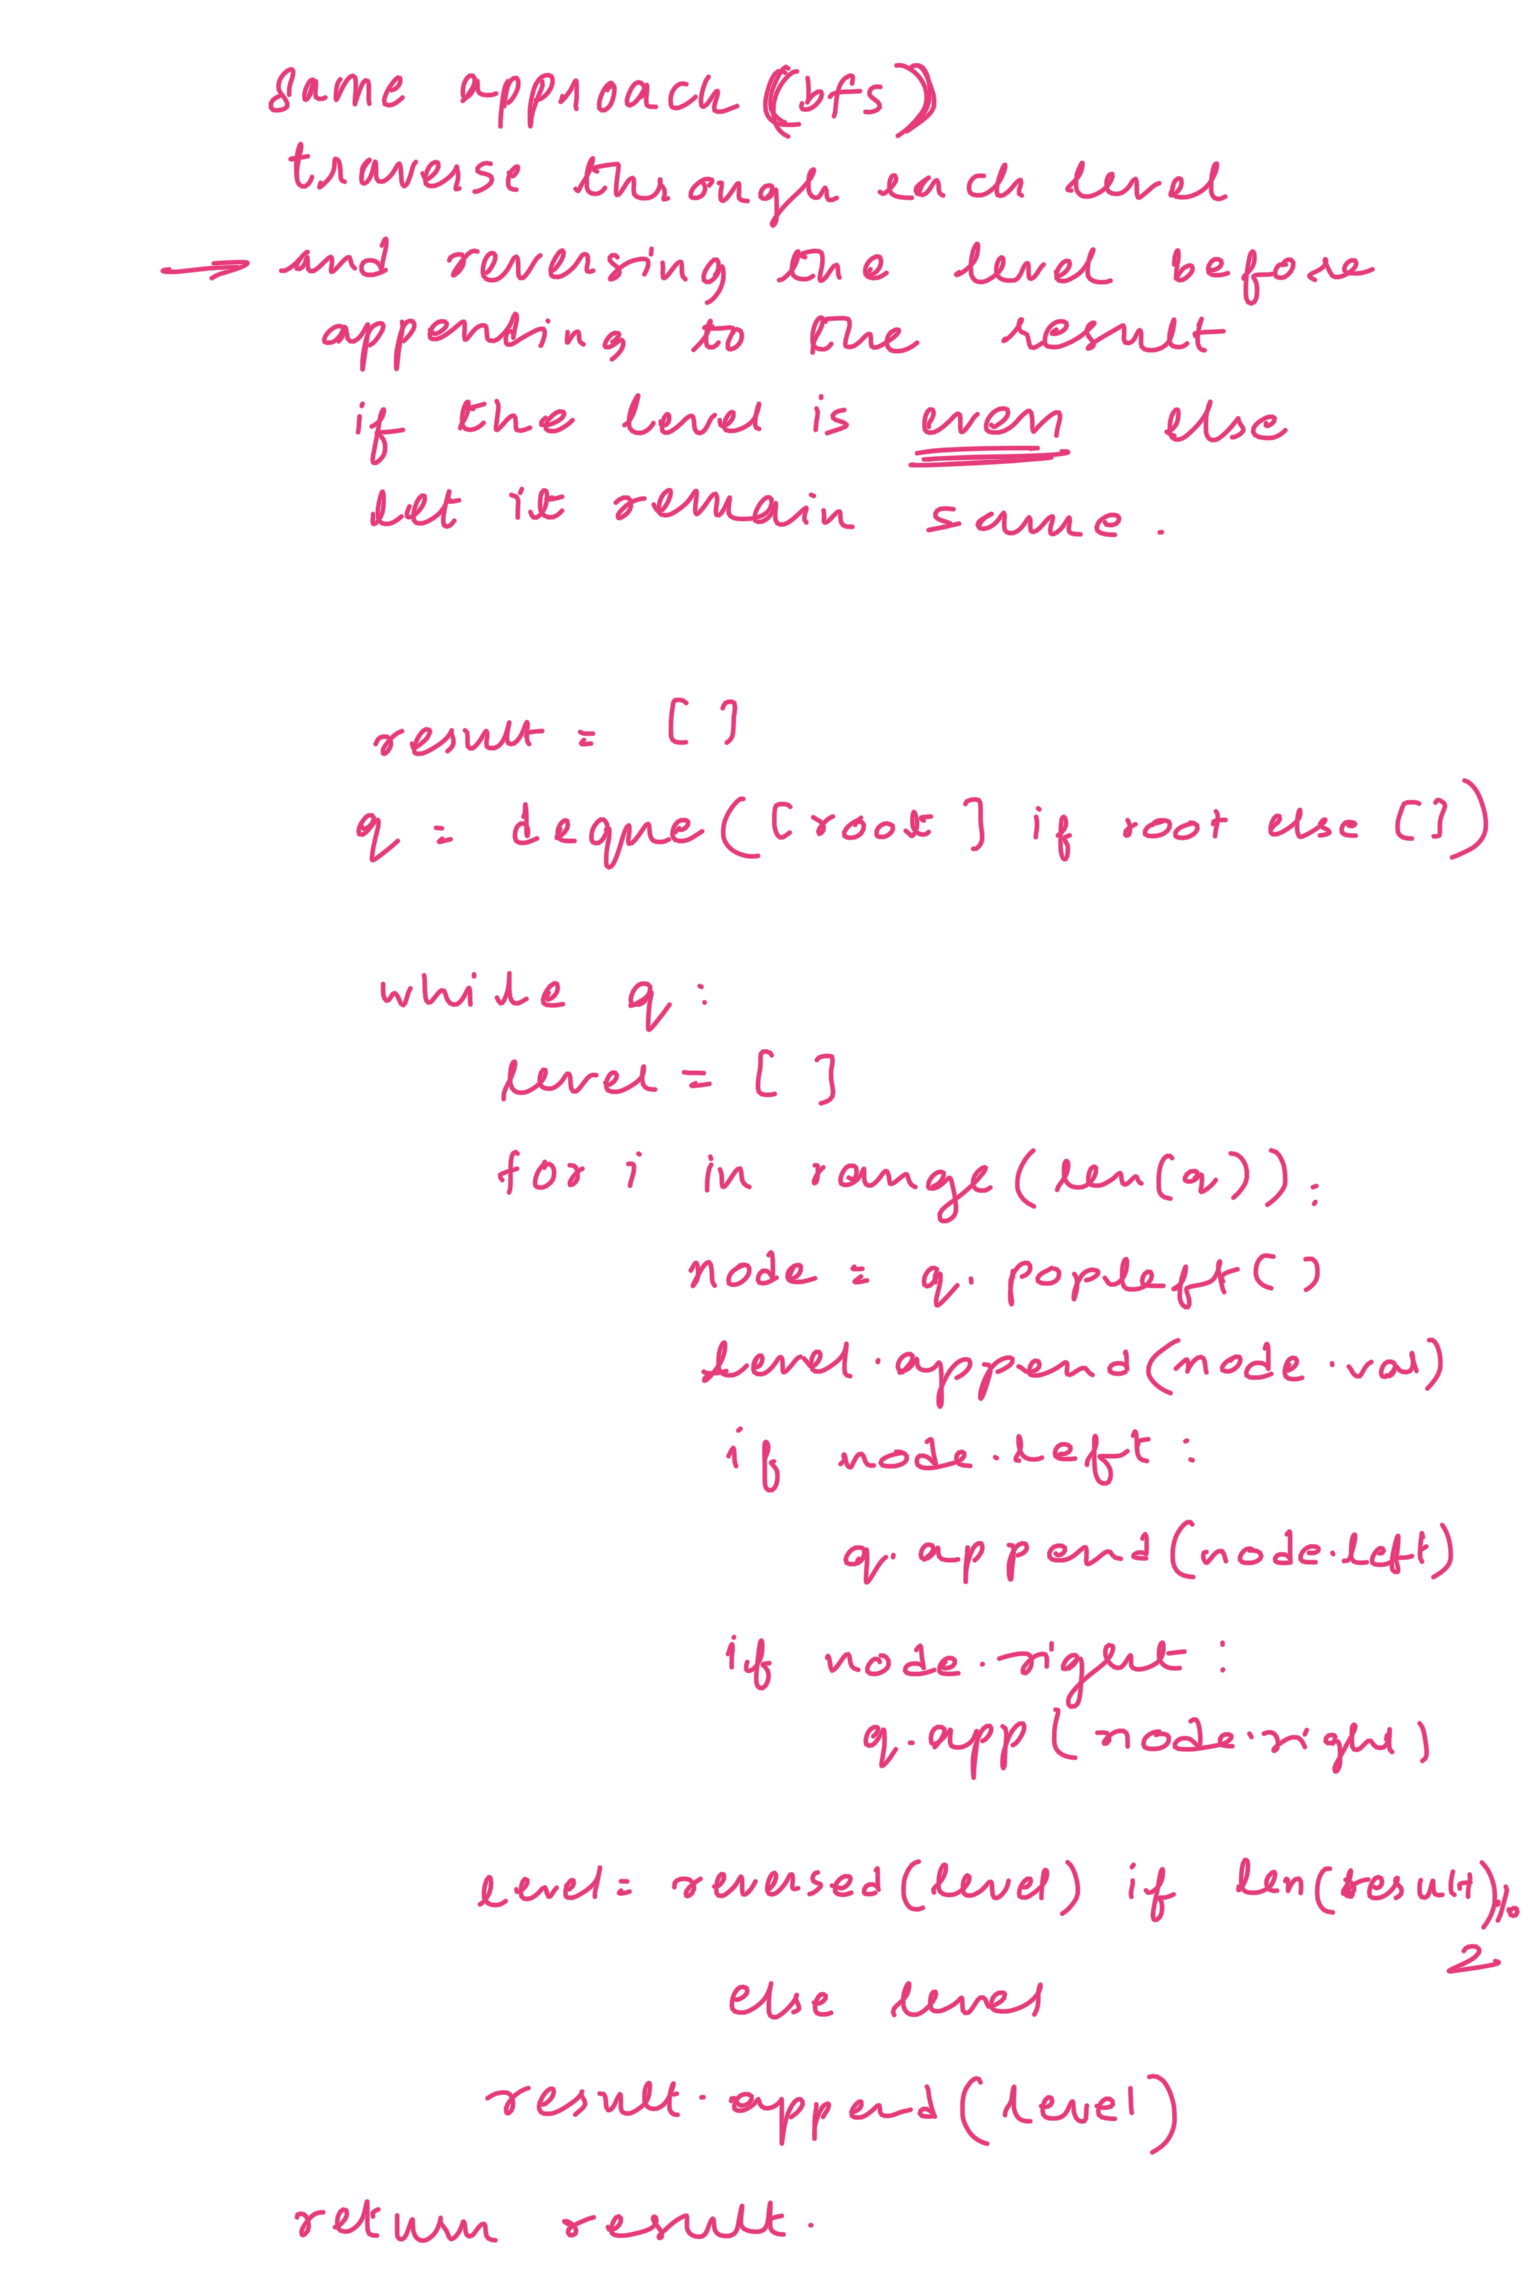 same approach (bfs)
traverse through each level
→ and reversing the level before
appending to the result
if the level is even else
let it remain same.
result = [ ]
q = deque([root] if root else [])
while q:
level = [ ]
for i in range(len(q)):
node = q.popleft()
level.append(node.val)
if node.left:
q.append(node.left)
if node.right:
q.app(node.right)
level = reversed(level) if len(result)%
2
else level
result.append(level)
return result.